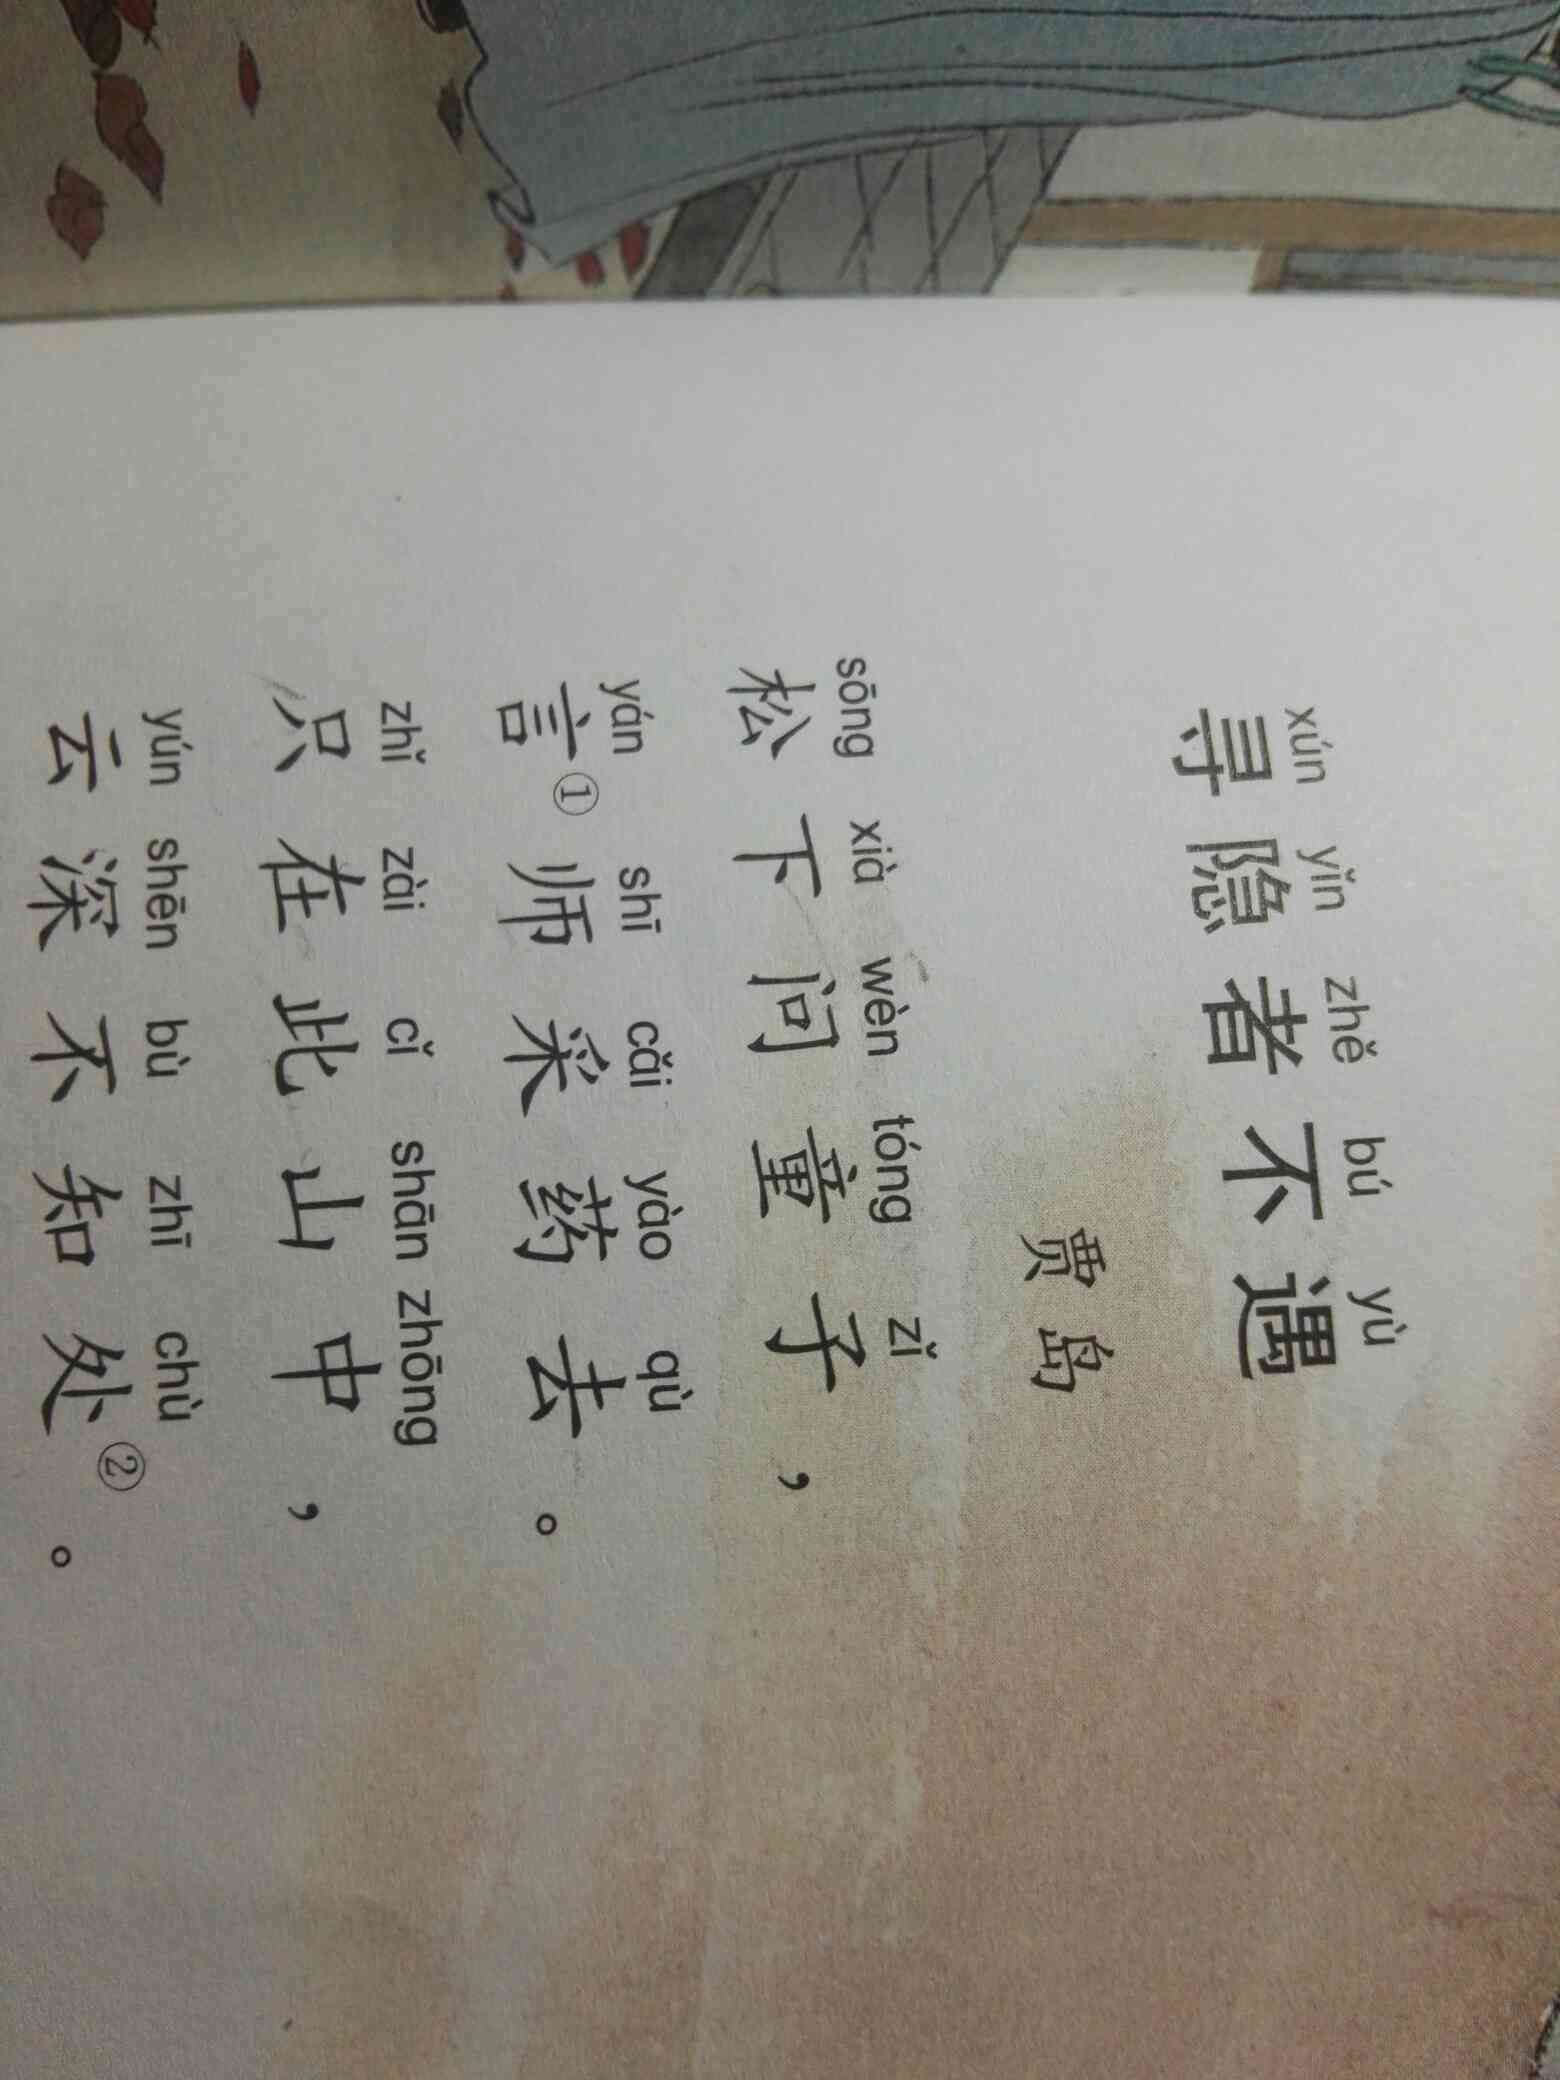 xún yǐn zhě bú yù
寻隐者不遇
贾岛
sōng xià wèn tóng zǐ
松下问童子，
yán shī cǎi yào qù
言①师采药去。
zhǐ zài cǐ shān zhōng
只在此山中，
yún shēn bù zhī chù
云深不知处②。